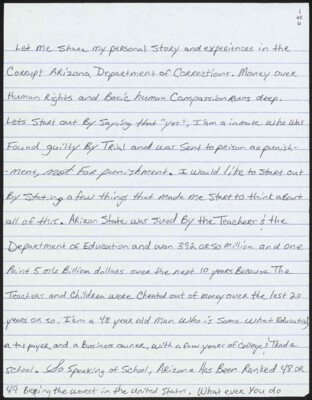 1
of
6
Let me Share my personal Story and experiences in the
Corrupt Arizona Department of Corrections. Money over
Human Rights and Basic human Compassion Runs deep.
Lets Start out By Saying that "yes", I am a inmate who was
Found guilty By Trial and was Sent to prison as punish-
-ment, not For punishment. I would like to Start out
By Stating a few things that made me Start to think about
all of this. Arizon State was Sued By the Teachers & the
Department of Education and won 392 or so million and one
Point 5 mlo Billion dollars over the next 10 years Because The
Teachers and Children were Cheated out of money over the last 20
years or so. I am a 48 year old man who is Some what Educated,
a tax payer, and a Business owner, with a few years of College & Trade
School. So Speaking of School, Arizona Has Been Ranked 48 OR
49 Being the worst in the United States. What ever You do